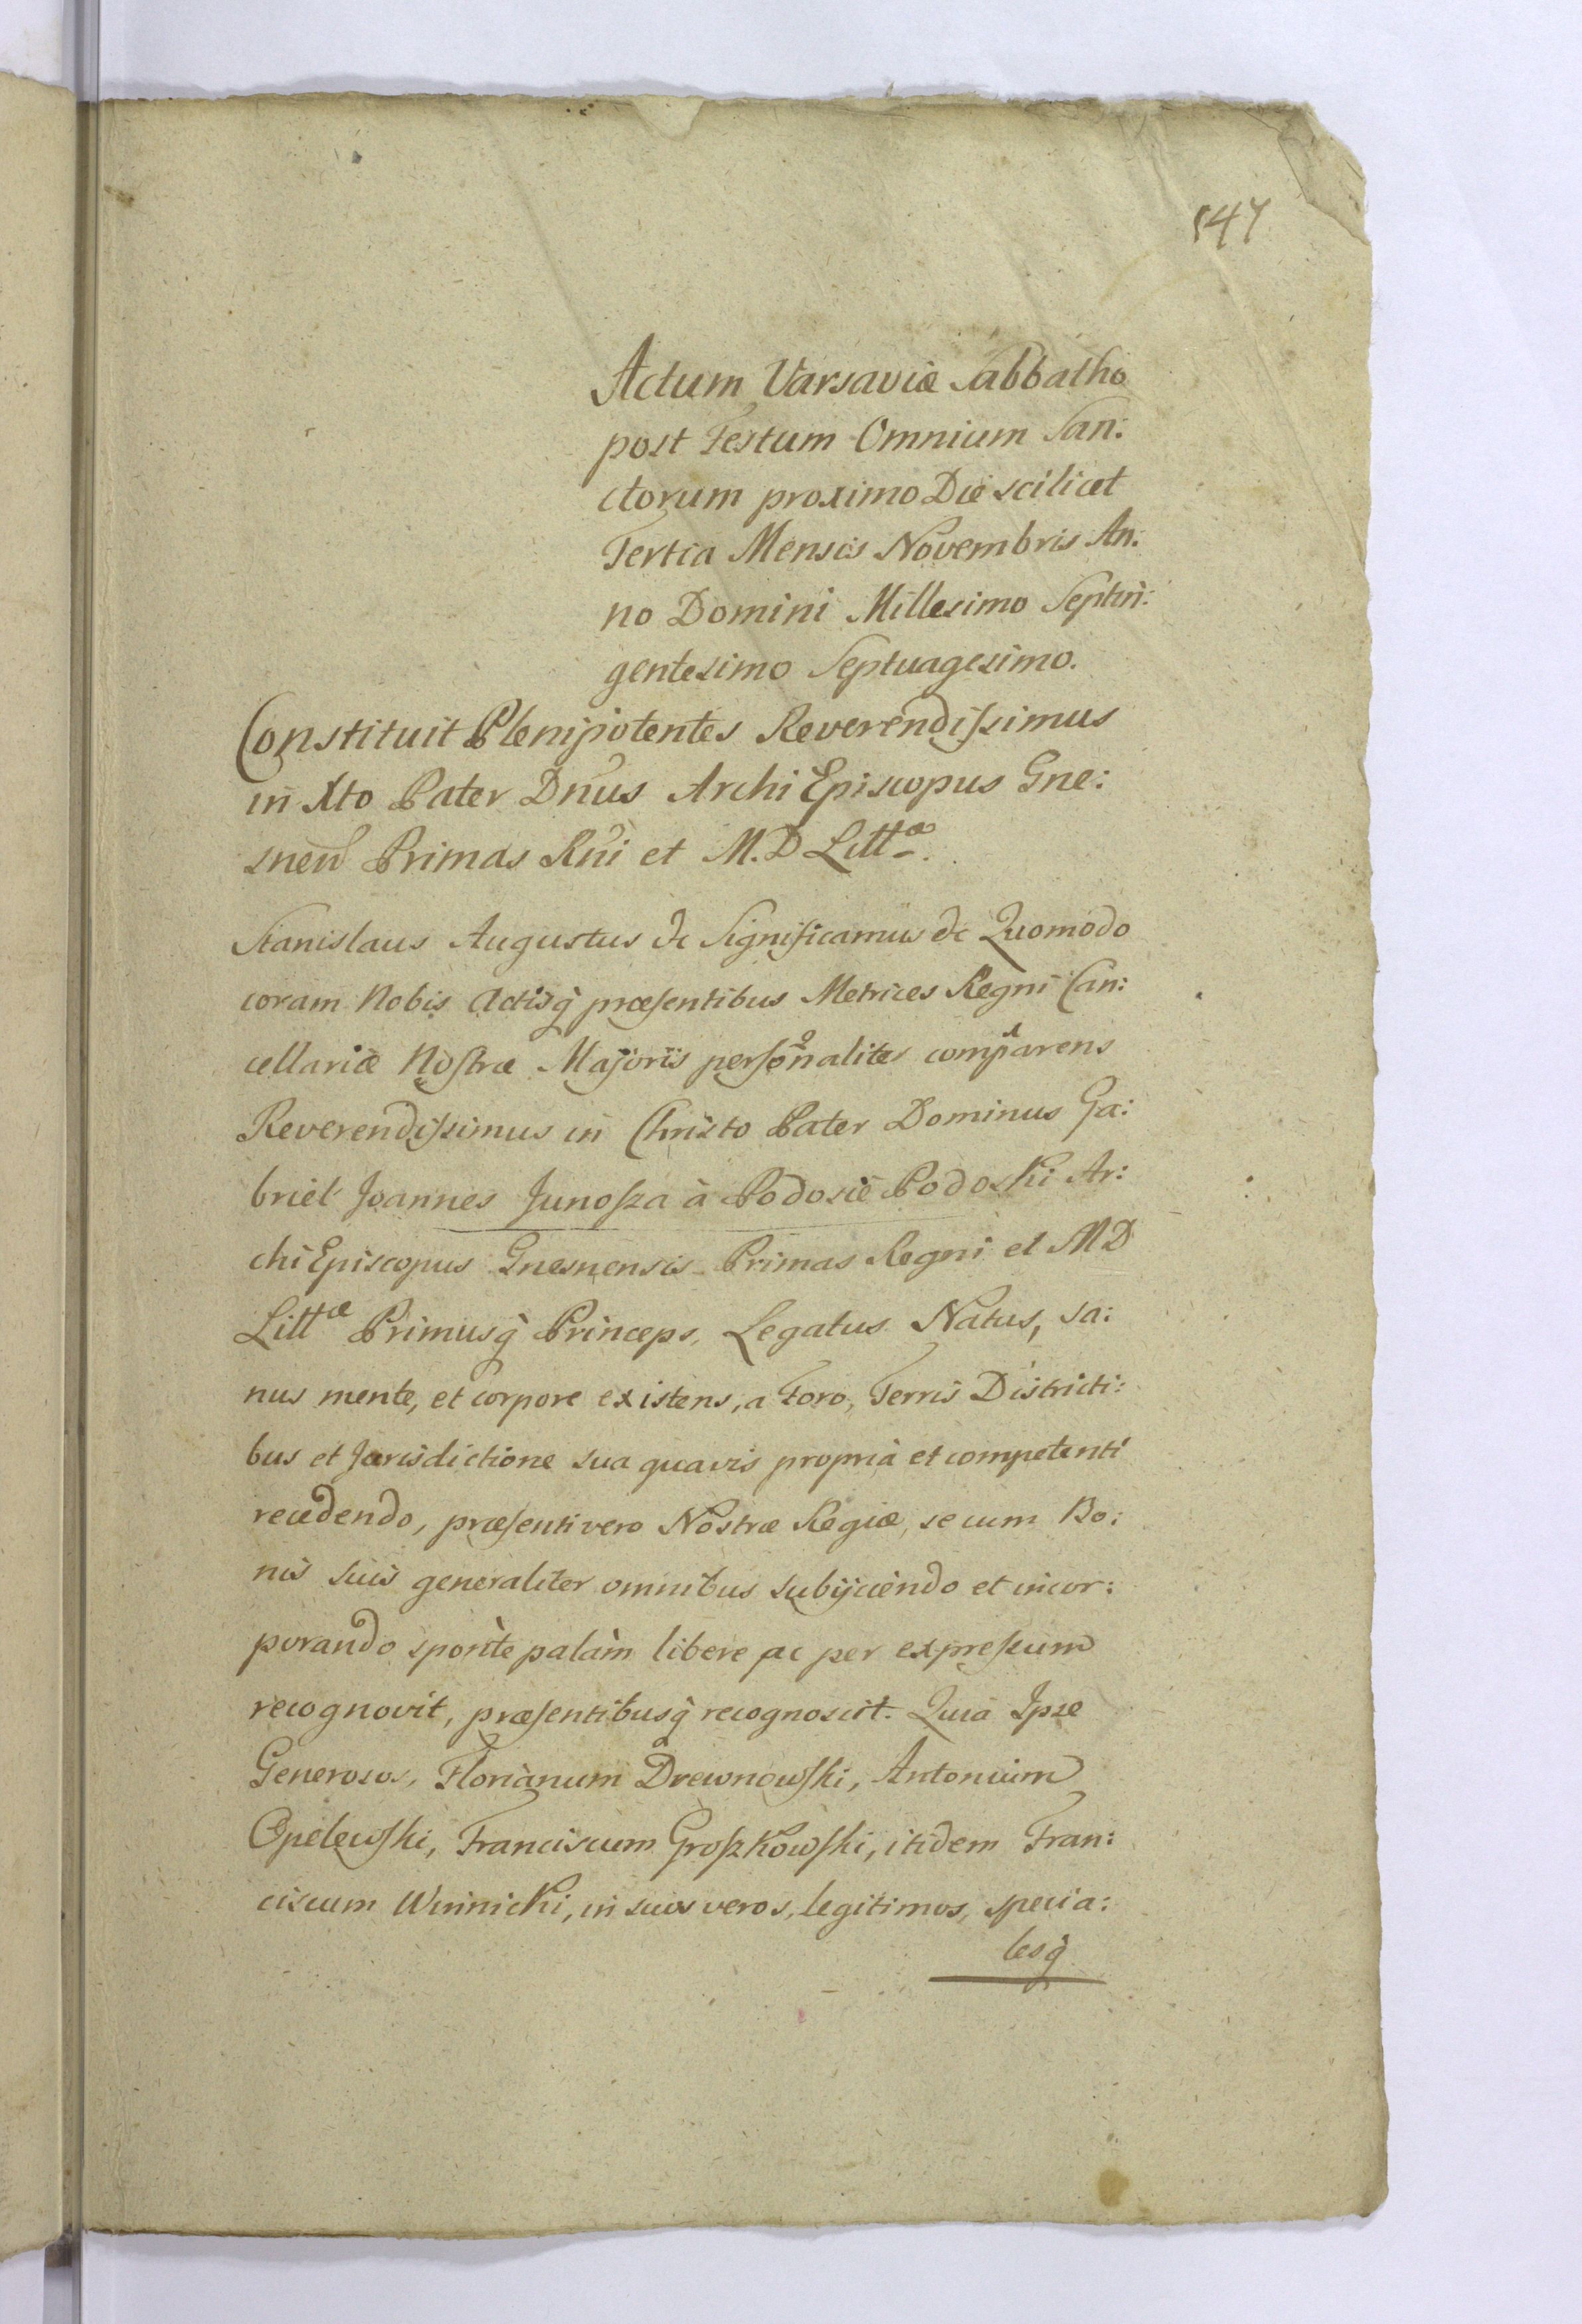 147
Actum Varsaviæ Sabbatho
post Festum Omnium San:
ctorum proximo Die scilicet
Tertia Mensis Novembris An:
no Domini Millesimo Septin:
gentesimo Septuagesimo.
Constituit Plenipotentes Reverendissimus
in Xto Pater Dnus Archi Episcopus Gne:
snen Primas Rni et M. D Littæ.
Stanislaus Augustus &c Significamus &c Quomodo
coram Nobis Actisq præsentibus Metrices Regni Can:
cellariæ Nostræ Majoris personaliter comparens
Reverendissimus in Christo Pater Dominus Ga:
briel Joannes Junosza à Podosie Podoski Ar:
chi Episcopus Gnesnensis Primas Regni et M D
Littæ Primusq Princeps, Legatus Natus, sa:
nus mente, et corpore existens, a Foro, Terris Districti:
bus et Jurisdictione sua quavis propria et competenti
recedendo, præsenti vero Nostræ Regiæ, se cum Bo:
nis suis generaliter omnibus subijciendo et incor:
porando sponte palàm libere ac per expressum
recognovit, præsentibusq recognoscit. Quia Ipse
Generosos, Florianum Drewnowski, Antonium
Opelewski, Franciscum Groszkowski, itidem Fran:
ciscum Winnicki, in suos veros, legitimos, specia:
lesq